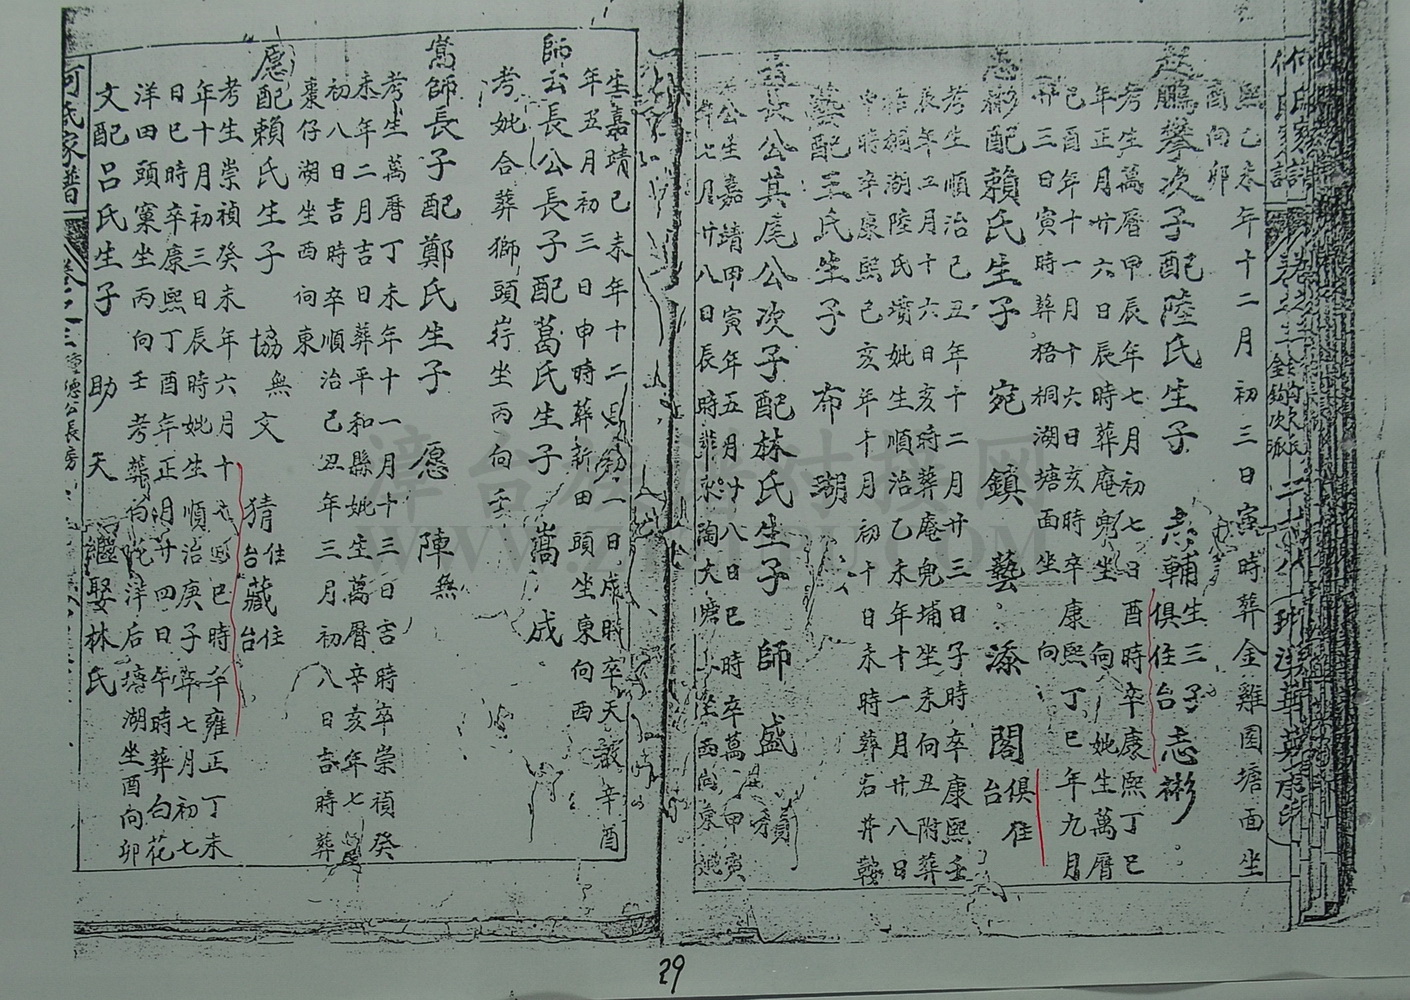 熙乙未年十二月初三日寅時葬金雞圈塘面坐
酉向卯
鵬攀次子配陸氏生子 志輔生三子俱住台 志彬
考生萬曆甲辰年七月初七日酉時卒康熙丁巳
年正月廿六日辰時葬庵兜坐 向 妣生萬曆
己酉年十一月十六日亥時卒康熙丁巳年九月
廿三日寅時葬梧桐湖塘面坐 向
志彬配賴氏生子 宛 鎮 藝 添 閣俱住台
考生順治己丑年十二月廿三日子時卒康熙壬
辰年五月十六日亥時葬庵兜埔坐未向丑附葬
梧桐湖陸氏墳妣生順治乙未年十一月廿八日
申時卒康熙己亥年十月初十日未時葬岩井鞍
藝配王氏生子 布 湖
長公其尾公次子配林氏生子 師 盛
公生嘉靖甲寅年五月廿八日巳時卒萬 甲寅
年七月廿八日長時葬水陶大塘 坐西向東
生嘉靖己未年十二月 二日戌時卒天啟辛酉
年五月初三日申時葬新田頭坐東向西
師公長公長子配葛氏生子 嵩 成
考妣合葬獅頭 坐丙向壬
嵩師長子配鄭氏生子 愿 陳無
考生萬曆丁未年十一月十三日吉時卒崇禎癸
未年二月吉日葬平和縣妣生萬曆辛亥年七月
初八日吉時卒順治己丑年三月初八日吉時葬
棗仔湖坐西向東
愿配賴氏生子 協無 文 猜住台 藏住台
考生崇禎癸未年六月十 日巳時卒雍正丁未
年十月初三日辰時妣生順治庚子年七月初七
日巳時卒康熙丁酉年正月廿四日午時葬白花
洋田頭窠坐丙向壬考葬 洋后塘湖坐酉向卯
文配呂氏生子 助 天 繼娶林氏
何氏家譜 卷之三
漳台族譜對接网
29